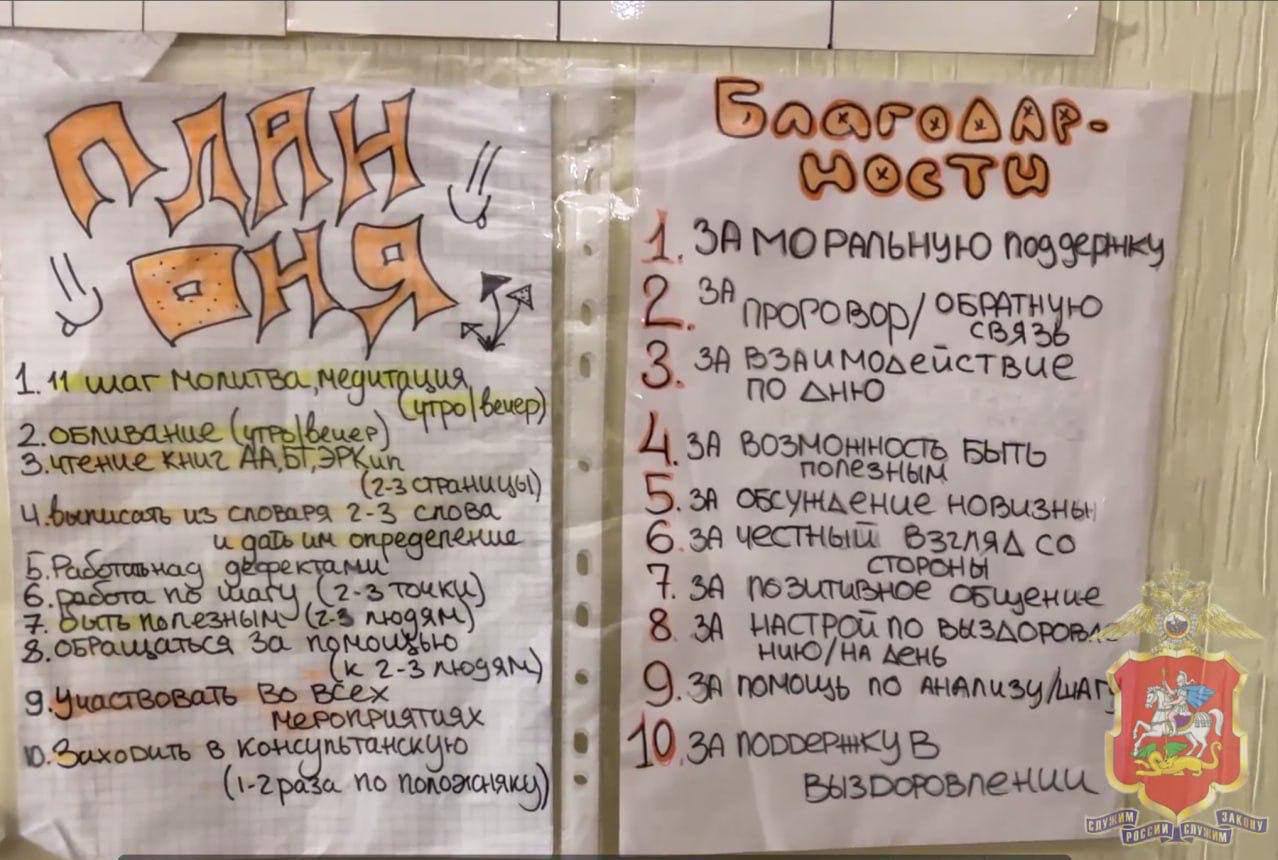 ПЛАН
ДНЯ
1. 11 шаг молитва, медитация
(утро|вечер)
2. обливание (утро|вечер)
3. чтение книг АА, БТ, ЭРКип
(2-3 страницы)
4. выписать из словаря 2-3 слова
и дать им определение
5. Работать над дефектами
6. работа по шагу (2-3 точки)
7. быть полезным (2-3 людям)
8. обращаться за помощью
(к 2-3 людям)
9. Участвовать во всех
мероприятиях
10. Заходить в консультанскую
(1-2 раза по положняку)
Благодар-
ности
1. За моральную поддержку
2. За проговор/обратную
связь
3. За взаимодействие
по дню
4. За возможность быть
полезным
5. За обсуждение новизны
6. За честный взгляд со
стороны
7. За позитивное общение
8. За настрой по выздоровле
нию/на день
9. За помощь по анализу/шагу
10. За поддержку в
выздоровлении
СЛУЖИМ РОССИИ СЛУЖИМ ЗАКОНУ